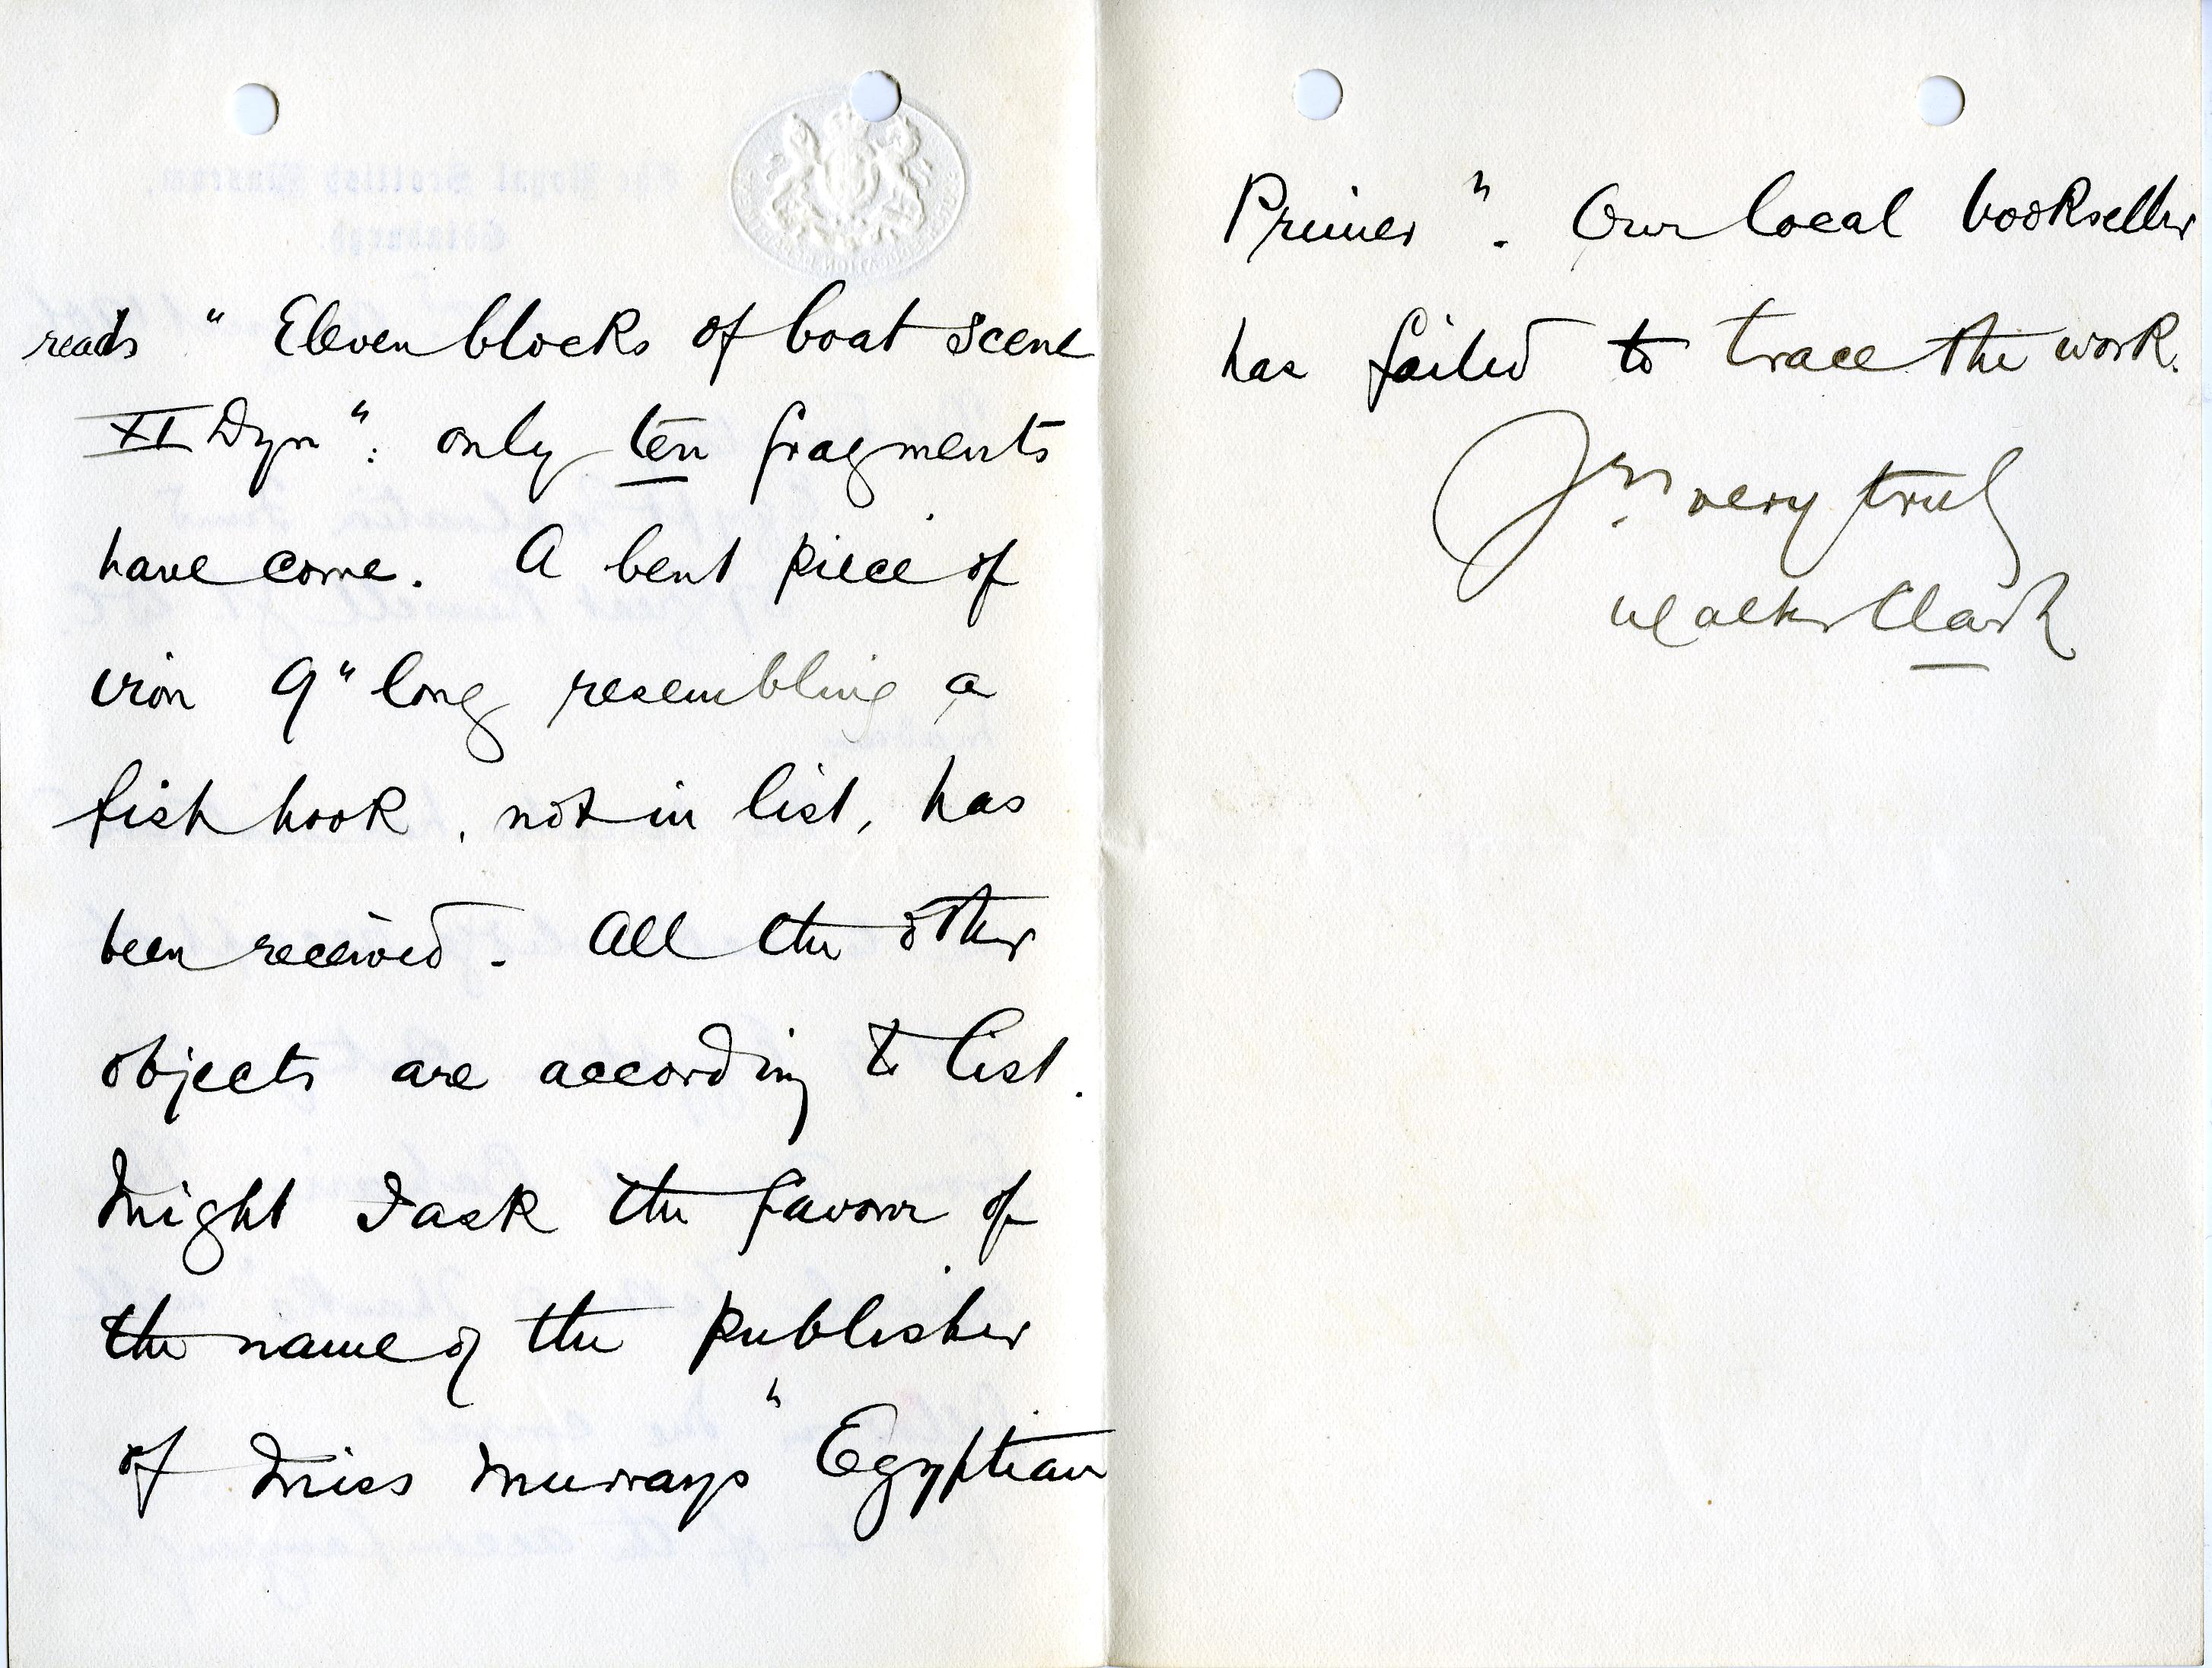 reads " Eleven blocks of boat scene
XI Dyn ": only ten fragments
have come. A bent piece of
iron 9" long resembling a
fish hook, not in list, has
been received. All the other
objects are according to list.
Might I ask the favour of
the name of the publisher
of Miss Murrays " Egyptian
Primer ". Our local bookseller
has failed to trace the work.
Yrs. very truly
Walter Clark